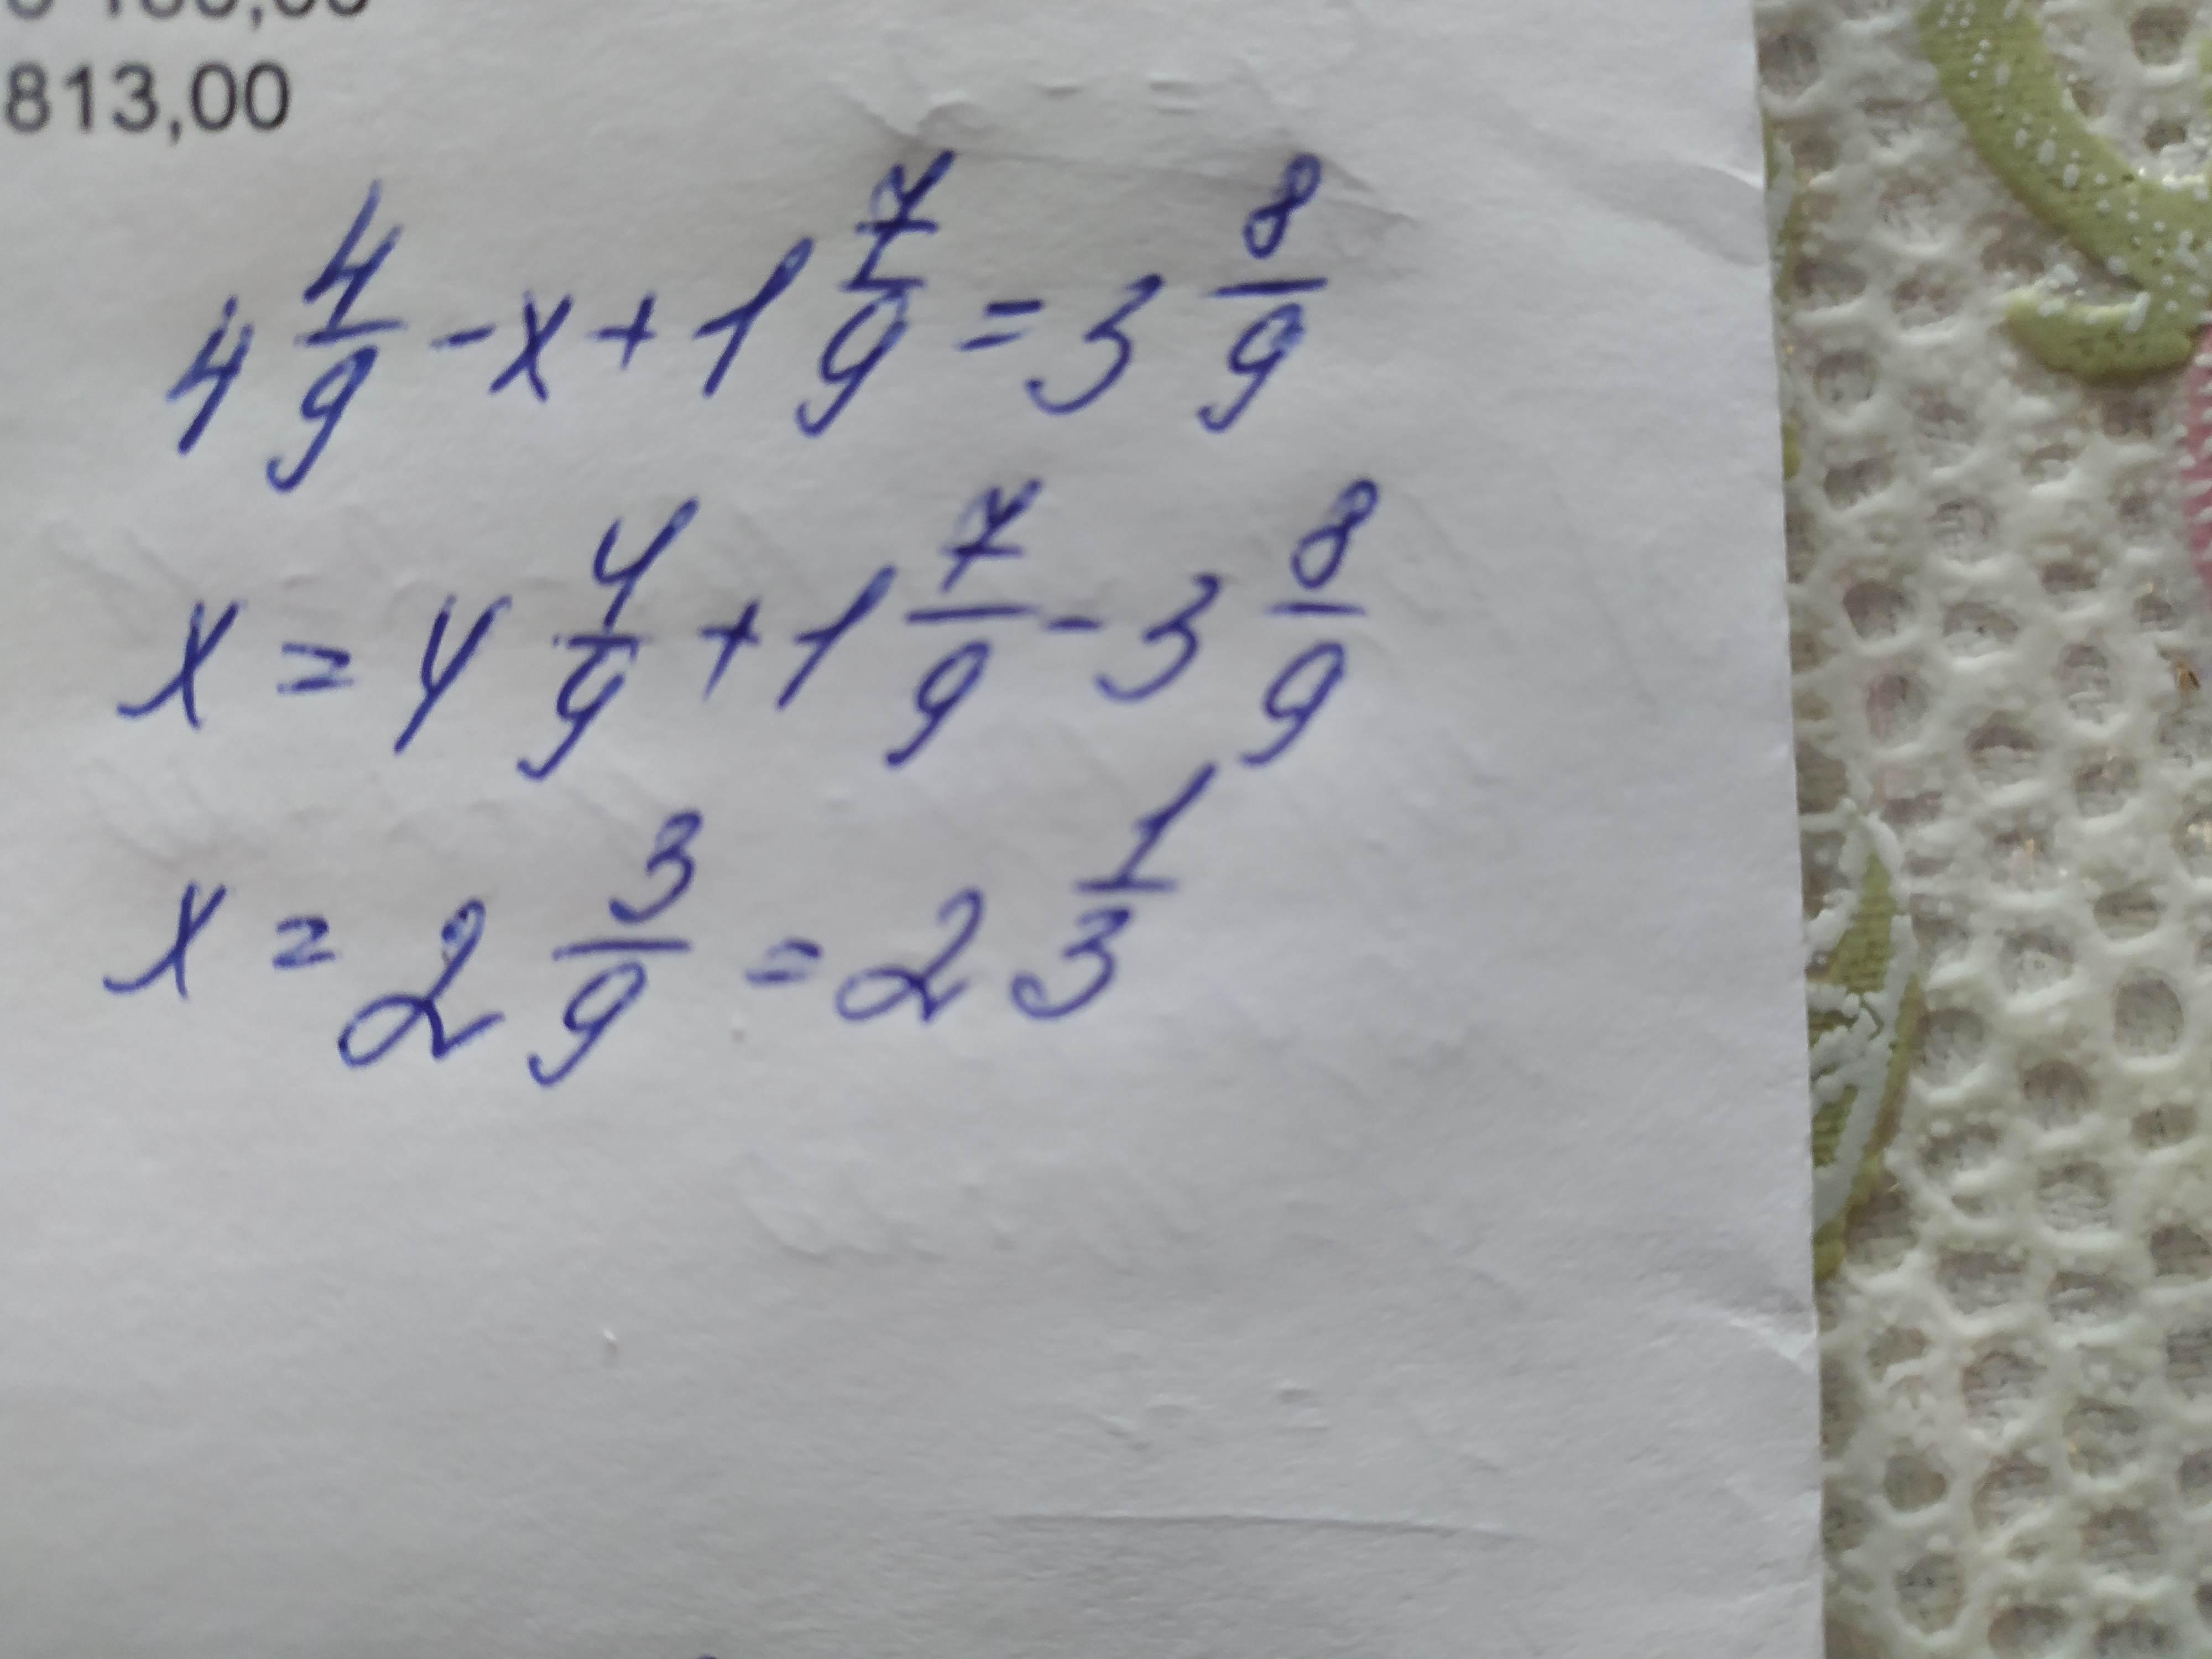 813,00
4 4/9 - x + 1 7/9 = 3 8/9
x = 4 4/9 + 1 7/9 - 3 8/9
x = 2 3/9 = 2 1/3